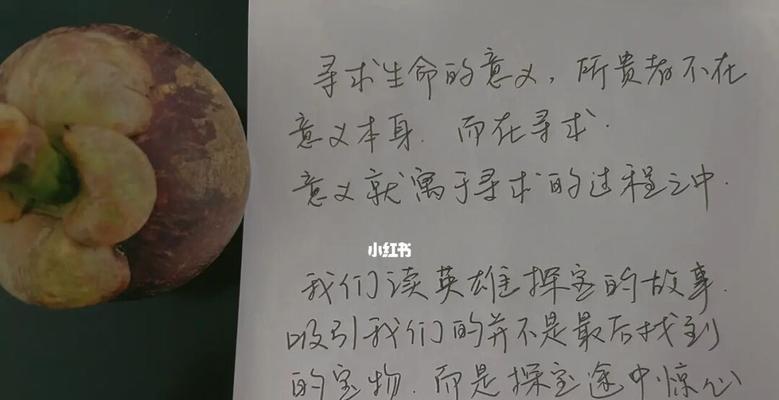 寻求生命的意义，所贵者不在
意义本身．而在寻求．
意义就寓于寻求的过程之中．
小红书
我们读英雄探宝的故事．
吸引我们的并不是最后找到
的宝物．而是探宝途中惊心